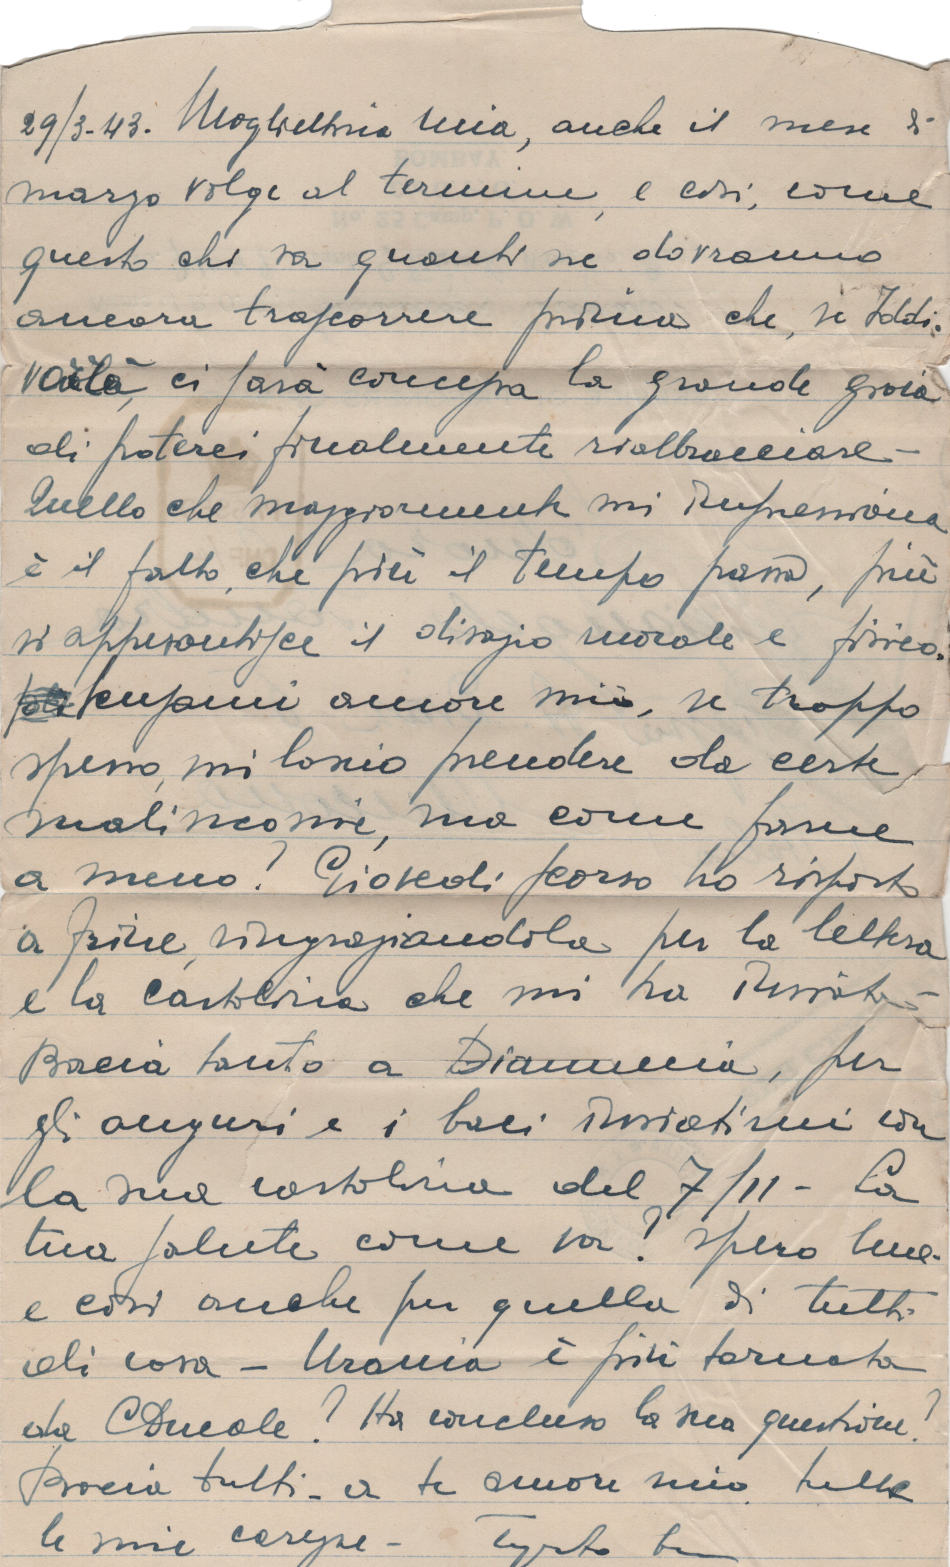 29/3-43. Mogliettina mia, anche il mese di
marzo volge al termine, e così, come
questo chi sa quanti ne dovranno
ancora trascorrere prima che, se Iddio
vorrà, ci sarà concessa la grande gioia
di poterci finalmente riabbracciare -
Quello che maggiormente mi impressiona
è il fatto, che più il tempo passa, più
si appesantisce il disagio morale e fisico.
scusami amore mio, se troppo
spesso, mi lascio prendere da certe
malinconie, ma come farne
a meno? Giovedì scorso ho risposto
a Irine, ringraziandola per la lettera
e la cartolina che mi ha inviato -
Bacia tanto a Diammina, per
gli auguri e i baci inviatimi con
la sua cartolina del 7/11 - La
tua salute come va? spero bene.
e così anche per quella di tutti
di casa - Urania è più tornata
da CDucale? Ha concluso la sua questione?
Bacia tutti - a te amore mio tutte
le mie carezze -